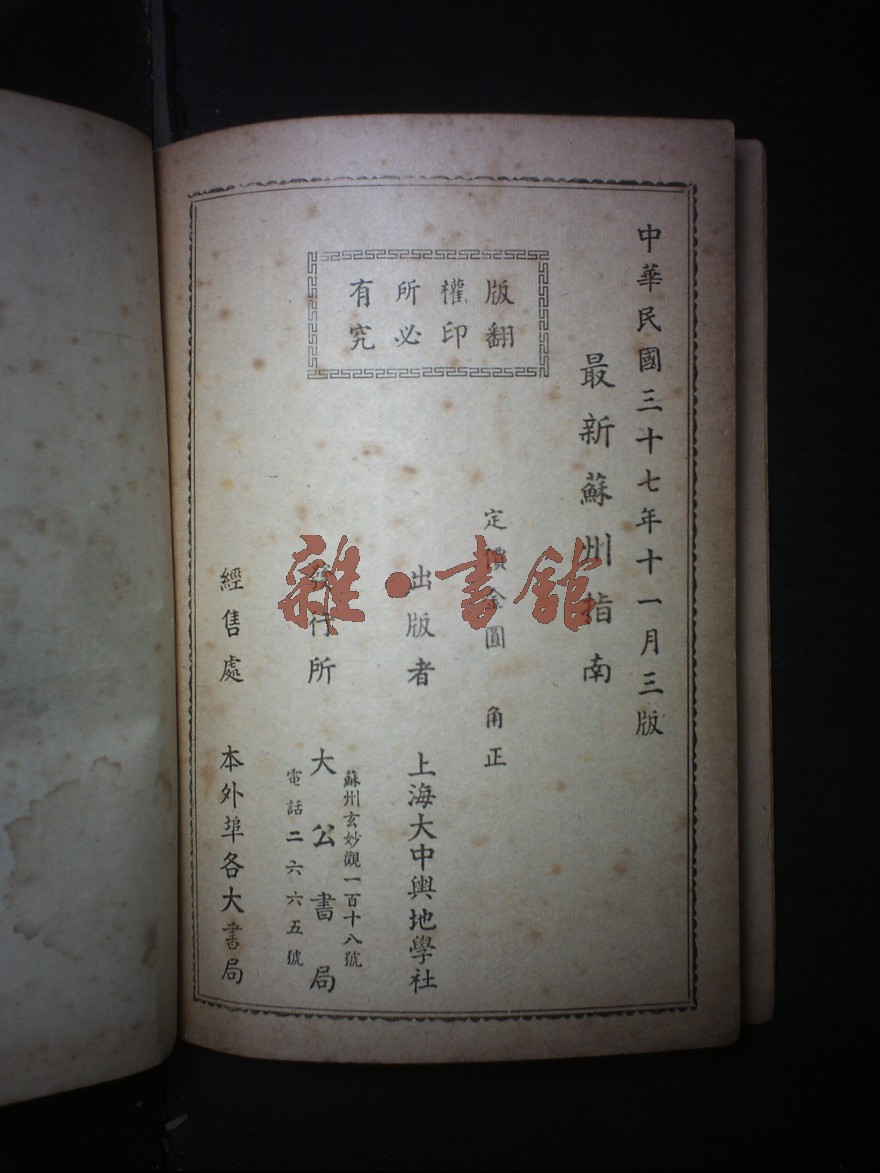 中華民國三十七年十一月三版
最新蘇州指南
版權所有
翻印必究
定價金圓 角正
出版者 上海大中輿地學社
發行所 大公書局
蘇州玄妙觀一百十八號
電話二六六五號
經售處 本外埠各大書局
雜·書館